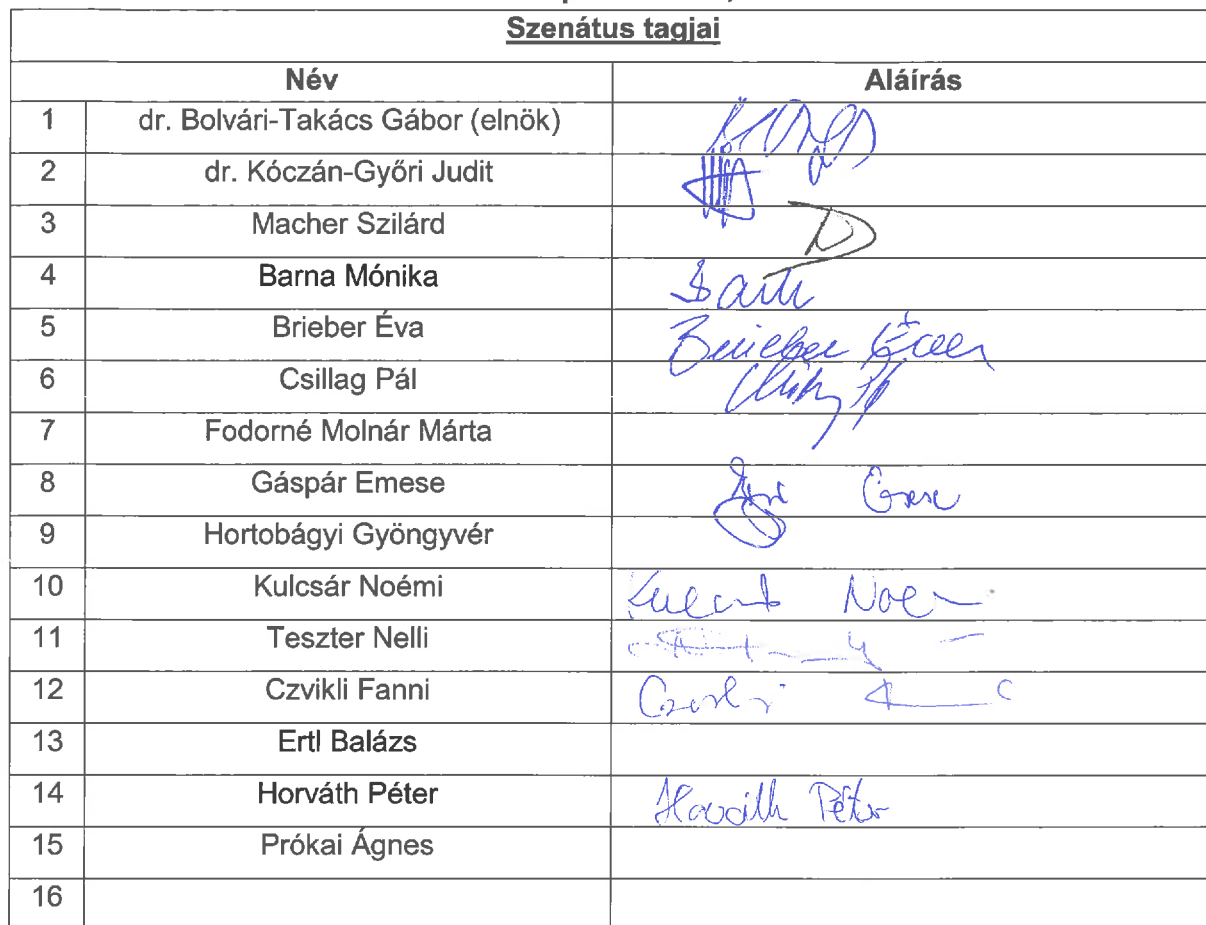 Szenátus tagjai
Név Aláírás
1 dr. Bolvári-Takács Gábor (elnök)
2 dr. Kóczán-Győri Judit
3 Macher Szilárd
4 Barna Mónika
5 Brieber Éva Brieber Éva
6 Csillag Pál
7 Fodorné Molnár Márta
8 Gáspár Emese
9 Hortobágyi Gyöngyvér
10 Kulcsár Noémi
11 Teszter Nelli
12 Czvikli Fanni
13 Ertl Balázs
14 Horváth Péter Horváth Péter
15 Prókai Ágnes
16